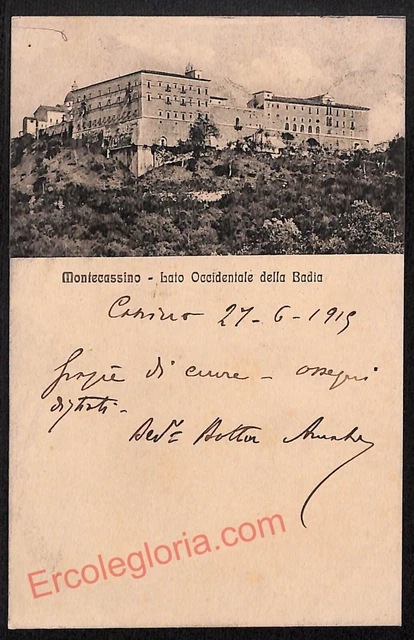 Montecassino - Lato Occidentale della Badia
Cassino 27-6-1915
Grazie di cuore - ossequi
distinti -
Dev.
Ercolegloria.com